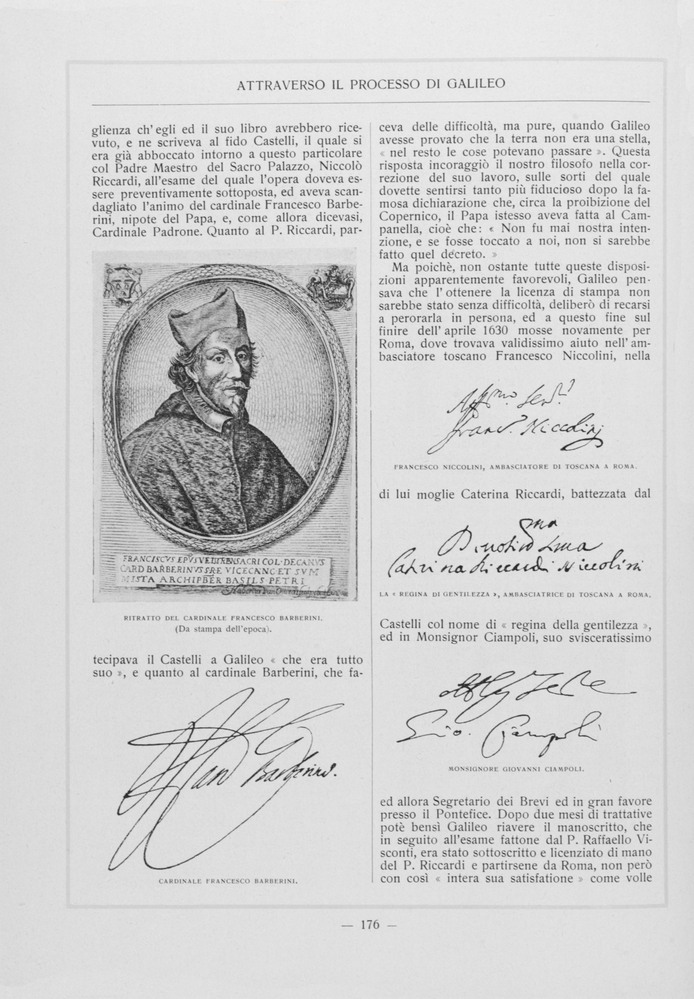 ATTRAVERSO IL PROCESSO DI GALILEO
glienza ch' egli ed il suo libro avrebbero rice-
vuto, e ne scriveva al fido Castelli, il quale si
era già abboccato intorno a questo particolare
col Padre Maestro del Sacro Palazzo, Niccolò
Riccardi, all'esame del quale l'opera doveva es-
sere preventivamente sottoposta, ed aveva scan-
dagliato l'animo del cardinale Francesco Barbe-
rini, nipote del Papa, e, come allora dicevasi,
Cardinale Padrone. Quanto al P. Riccardi, par-
FRANCISCVS EPVS VELITERN SACRI COL· DECANVS
CARD BARBERINVS SRE VICECANC ET SVM
MISTA ARCHIPBER BASIL S· PETRI
RITRATTO DEL CARDINALE FRANCESCO BARBERINI.
(Da stampa dell'epoca).
tecipava il Castelli a Galileo « che era tutto
suo », e quanto al cardinale Barberini, che fa-
Barberino.
CARDINALE FRANCESCO BARBERINI.
ceva delle difficoltà, ma pure, quando Galileo
avesse provato che la terra non era una stella,
« nel resto le cose potevano passare ». Questa
risposta incoraggiò il nostro filosofo nella cor-
rezione del suo lavoro, sulle sorti del quale
dovette sentirsi tanto più fiducioso dopo la fa-
mosa dichiarazione che, circa la proibizione del
Copernico, il Papa istesso aveva fatta al Cam-
panella, cioè che: « Non fu mai nostra inten-
zione, e se fosse toccato a noi, non si sarebbe
fatto quel decreto. »
Ma poichè, non ostante tutte queste disposi-
zioni apparentemente favorevoli, Galileo pen-
sava che l' ottenere la licenza di stampa non
sarebbe stato senza difficoltà, deliberò di recarsi
a perorarla in persona, ed a questo fine sul
finire dell' aprile 1630 mosse novamente per
Roma, dove trovava validissimo aiuto nell' am-
basciatore toscano Francesco Niccolini, nella
Aff.mo Ser.
Franc.o Niccolinj
FRANCESCO NICCOLINI, AMBASCIATORE DI TOSCANA A ROMA.
di lui moglie Caterina Riccardi, battezzata dal
Caterina Riccardi Niccolini
LA « REGINA DI GENTILEZZA », AMBASCIATRICE DI TOSCANA A ROMA.
Castelli col nome di « regina della gentilezza »,
ed in Monsignor Ciampoli, suo svisceratissimo
Gio. Ciampoli
MONSIGNORE GIOVANNI CIAMPOLI.
ed allora Segretario dei Brevi ed in gran favore
presso il Pontefice. Dopo due mesi di trattative
potè bensì Galileo riavere il manoscritto, che
in seguito all'esame fattone dal P. Raffaello Vi-
sconti, era stato sottoscritto e licenziato di mano
del P. Riccardi e partirsene da Roma, non però
con così « intera sua satisfatione » come volle
— 176 —